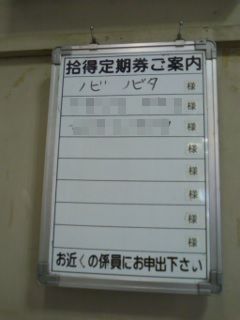 拾得定期券ご案内
ノビ ノビタ 様
様
様
様
様
様
様
様
お近くの係員にお申出下さい